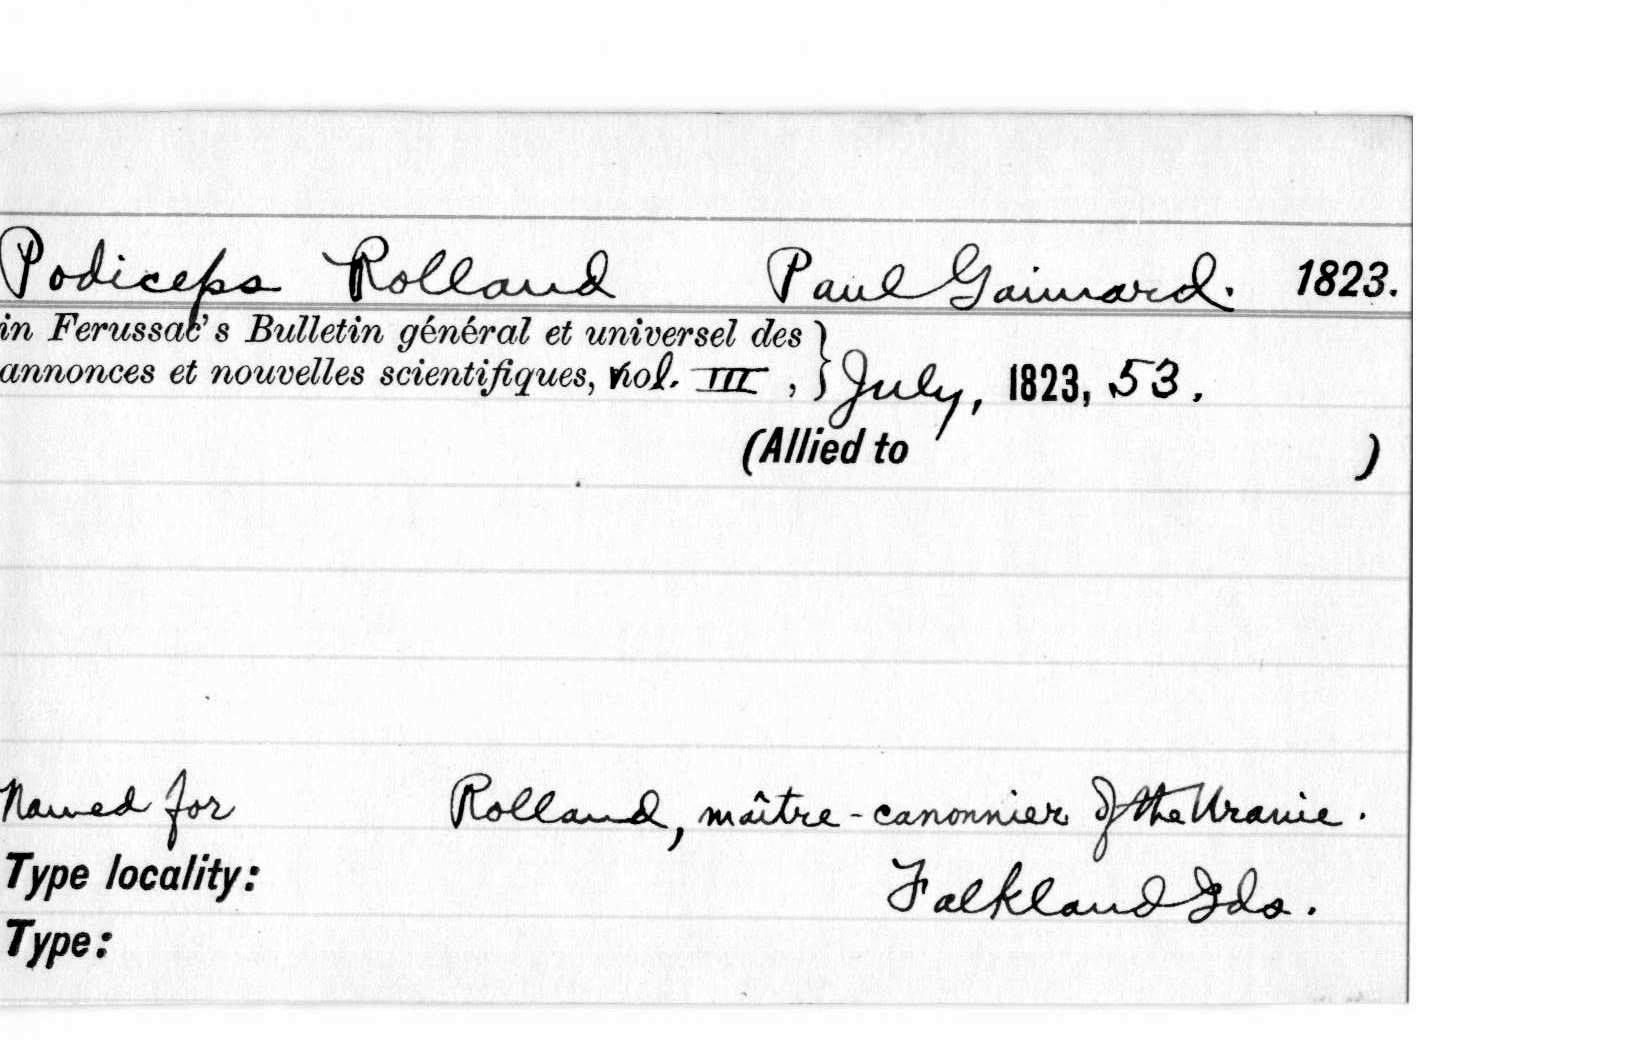 Podiceps Rolland Paul Gaimard. 1823.
in Ferussac's Bulletin général et universel des
annonces et nouvelles scientifiques, vol. III, } July, 1823, 53.
(Allied to )
Named for Rolland, maître-canonnier of the Uranie.
Type locality: Falkland Ids.
Type: